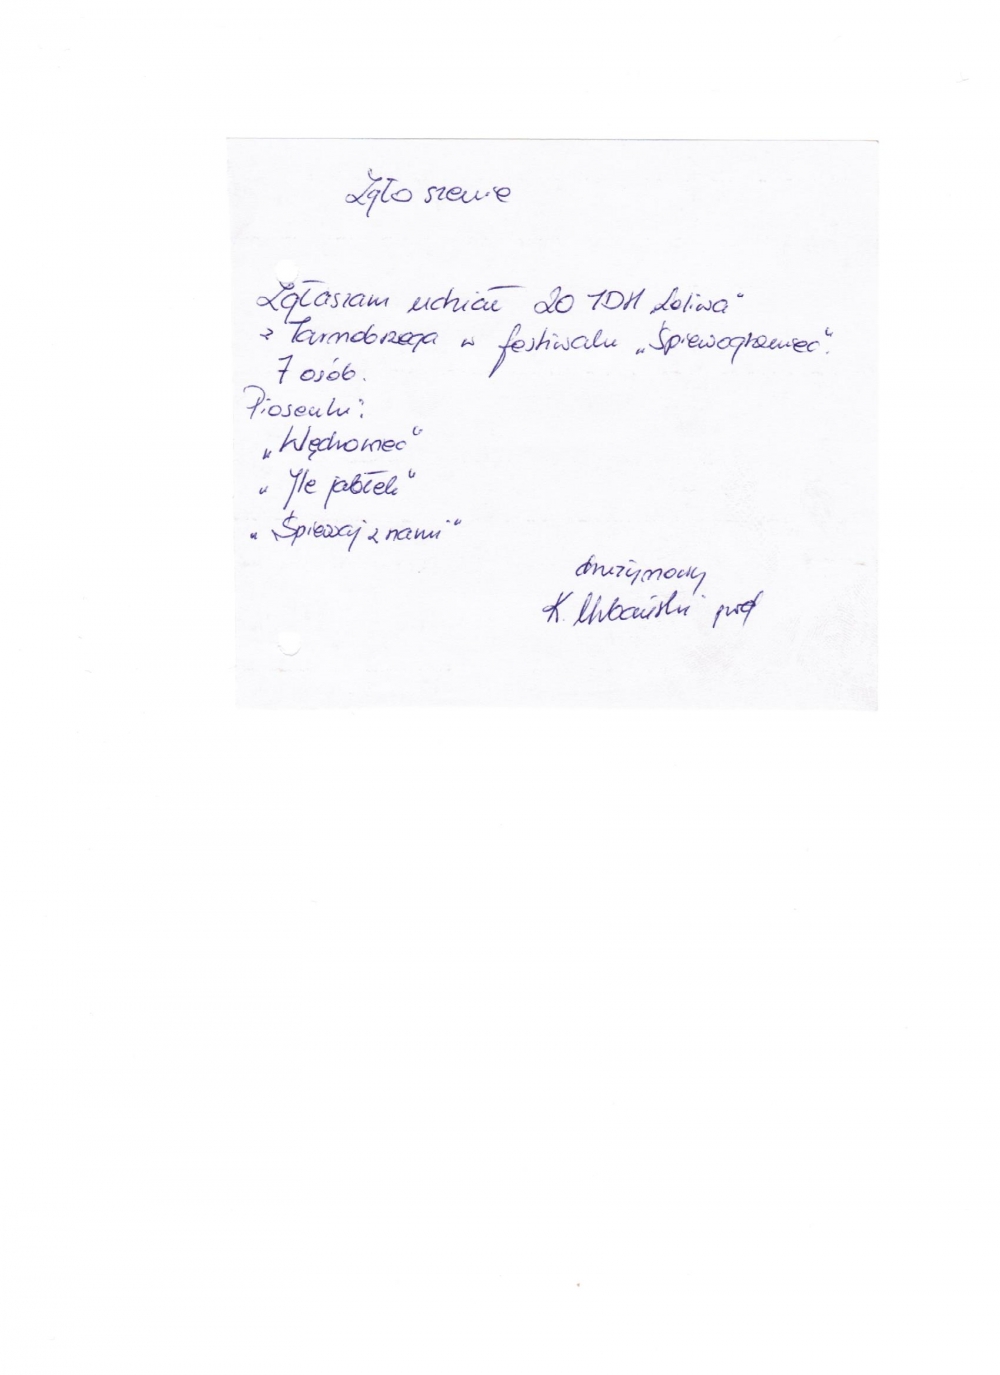 Zgłoszenie
Zgłaszam udział 20 TDH
z Tarnobrzega w festiwalu „Śpiewogrzmieć”.
7 osób.
Piosenki:
„Wędrowiec”
„Ile jabłek”
„Śpiewaj z nami”
drużynowy
K. Urbański pwd